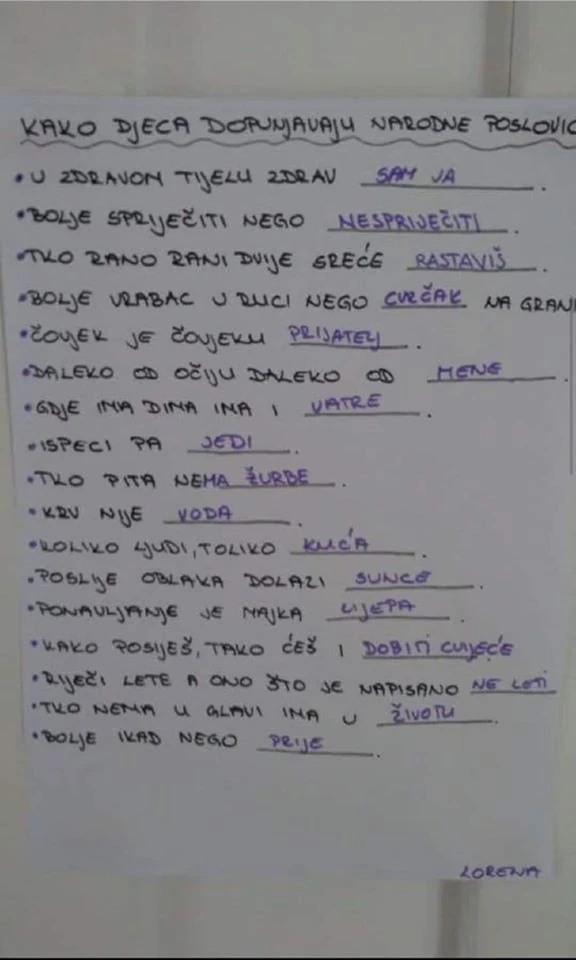 KAKO DJECA DOPUNJAVAJU NARODNE POSLOVIC
• U ZDRAVOM TIJELU ZDRAV SAM JA.
• BOLJE SPRIJEČITI NEGO NESPRIJEČITI.
• TKO RANO RANI DVIJE SREĆE RASTAVIŠ.
• BOLJE VRABAC U RUCI NEGO CVRČAK NA GRANI
• ČOVJEK JE ČOVJEKU PRIJATELJ.
• DALEKO OD OČIJU DALEKO OD MENE.
• GDJE IMA DIMA IMA I VATRE.
• ISPECI PA JEDI.
• TKO PITA NEMA ŽURBE.
• KRV NIJE VODA.
• KOLIKO LJUDI, TOLIKO KUĆA.
• POSLIJE OBLAKA DOLAZI SUNCE.
• PONAVLJANJE JE MAJKA LIJEPA.
• KAKO POSIJEŠ, TAKO ĆEŠ I DOBITI CVIJEĆE
• RIJEČI LETE A ONO ŠTO JE NAPISANO NE LETI
• TKO NEMA U GLAVI IMA U ŽIVOTU.
• BOLJE IKAD NEGO PRIJE.
LORENA